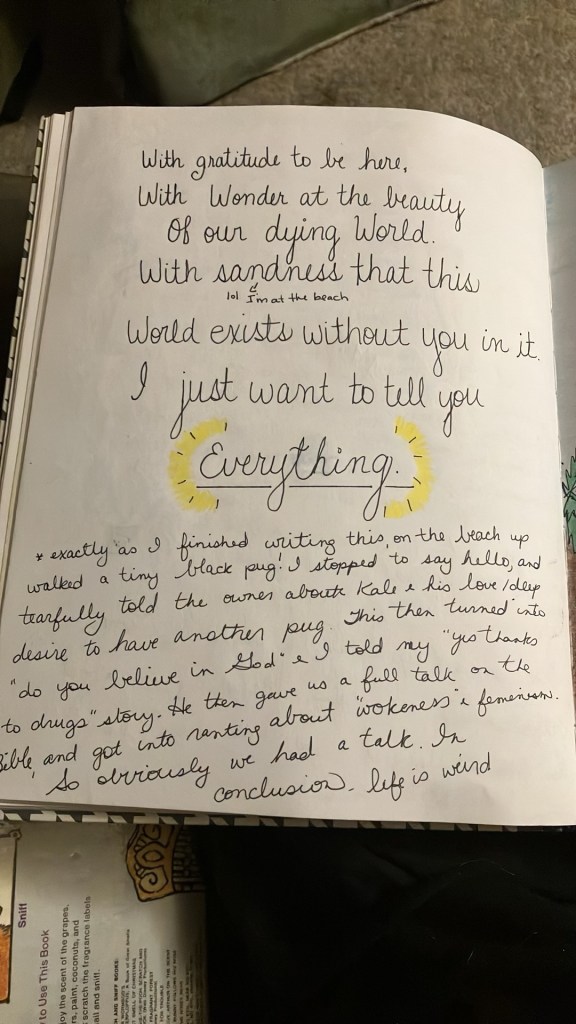 With gratitude to be here,
With Wonder at the beauty
Of our dying World.
With sandness that this
lol I'm at the beach
World exists without you in it.
I just want to tell you
Everything.
* exactly as I finished writing this, on the beach up
walked a tiny black pug! I stopped to say hello, and
tearfully told the owner about Kale & his love/deep
desire to have another pug. This then turned into
"do you believe in God" & I told my "yes thanks
to drugs" story. He then gave us a full talk on the
Bible, and got into ranting about "wokeness" & feminism.
So obviously we had a talk. In
conclusion. life is weird
Sniff
to Use This Book
joy the scent of the grapes,
rs, paint, coconuts, and
scratch the fragrance labels
all and sniff.
H AND SNIFF BOOKS: